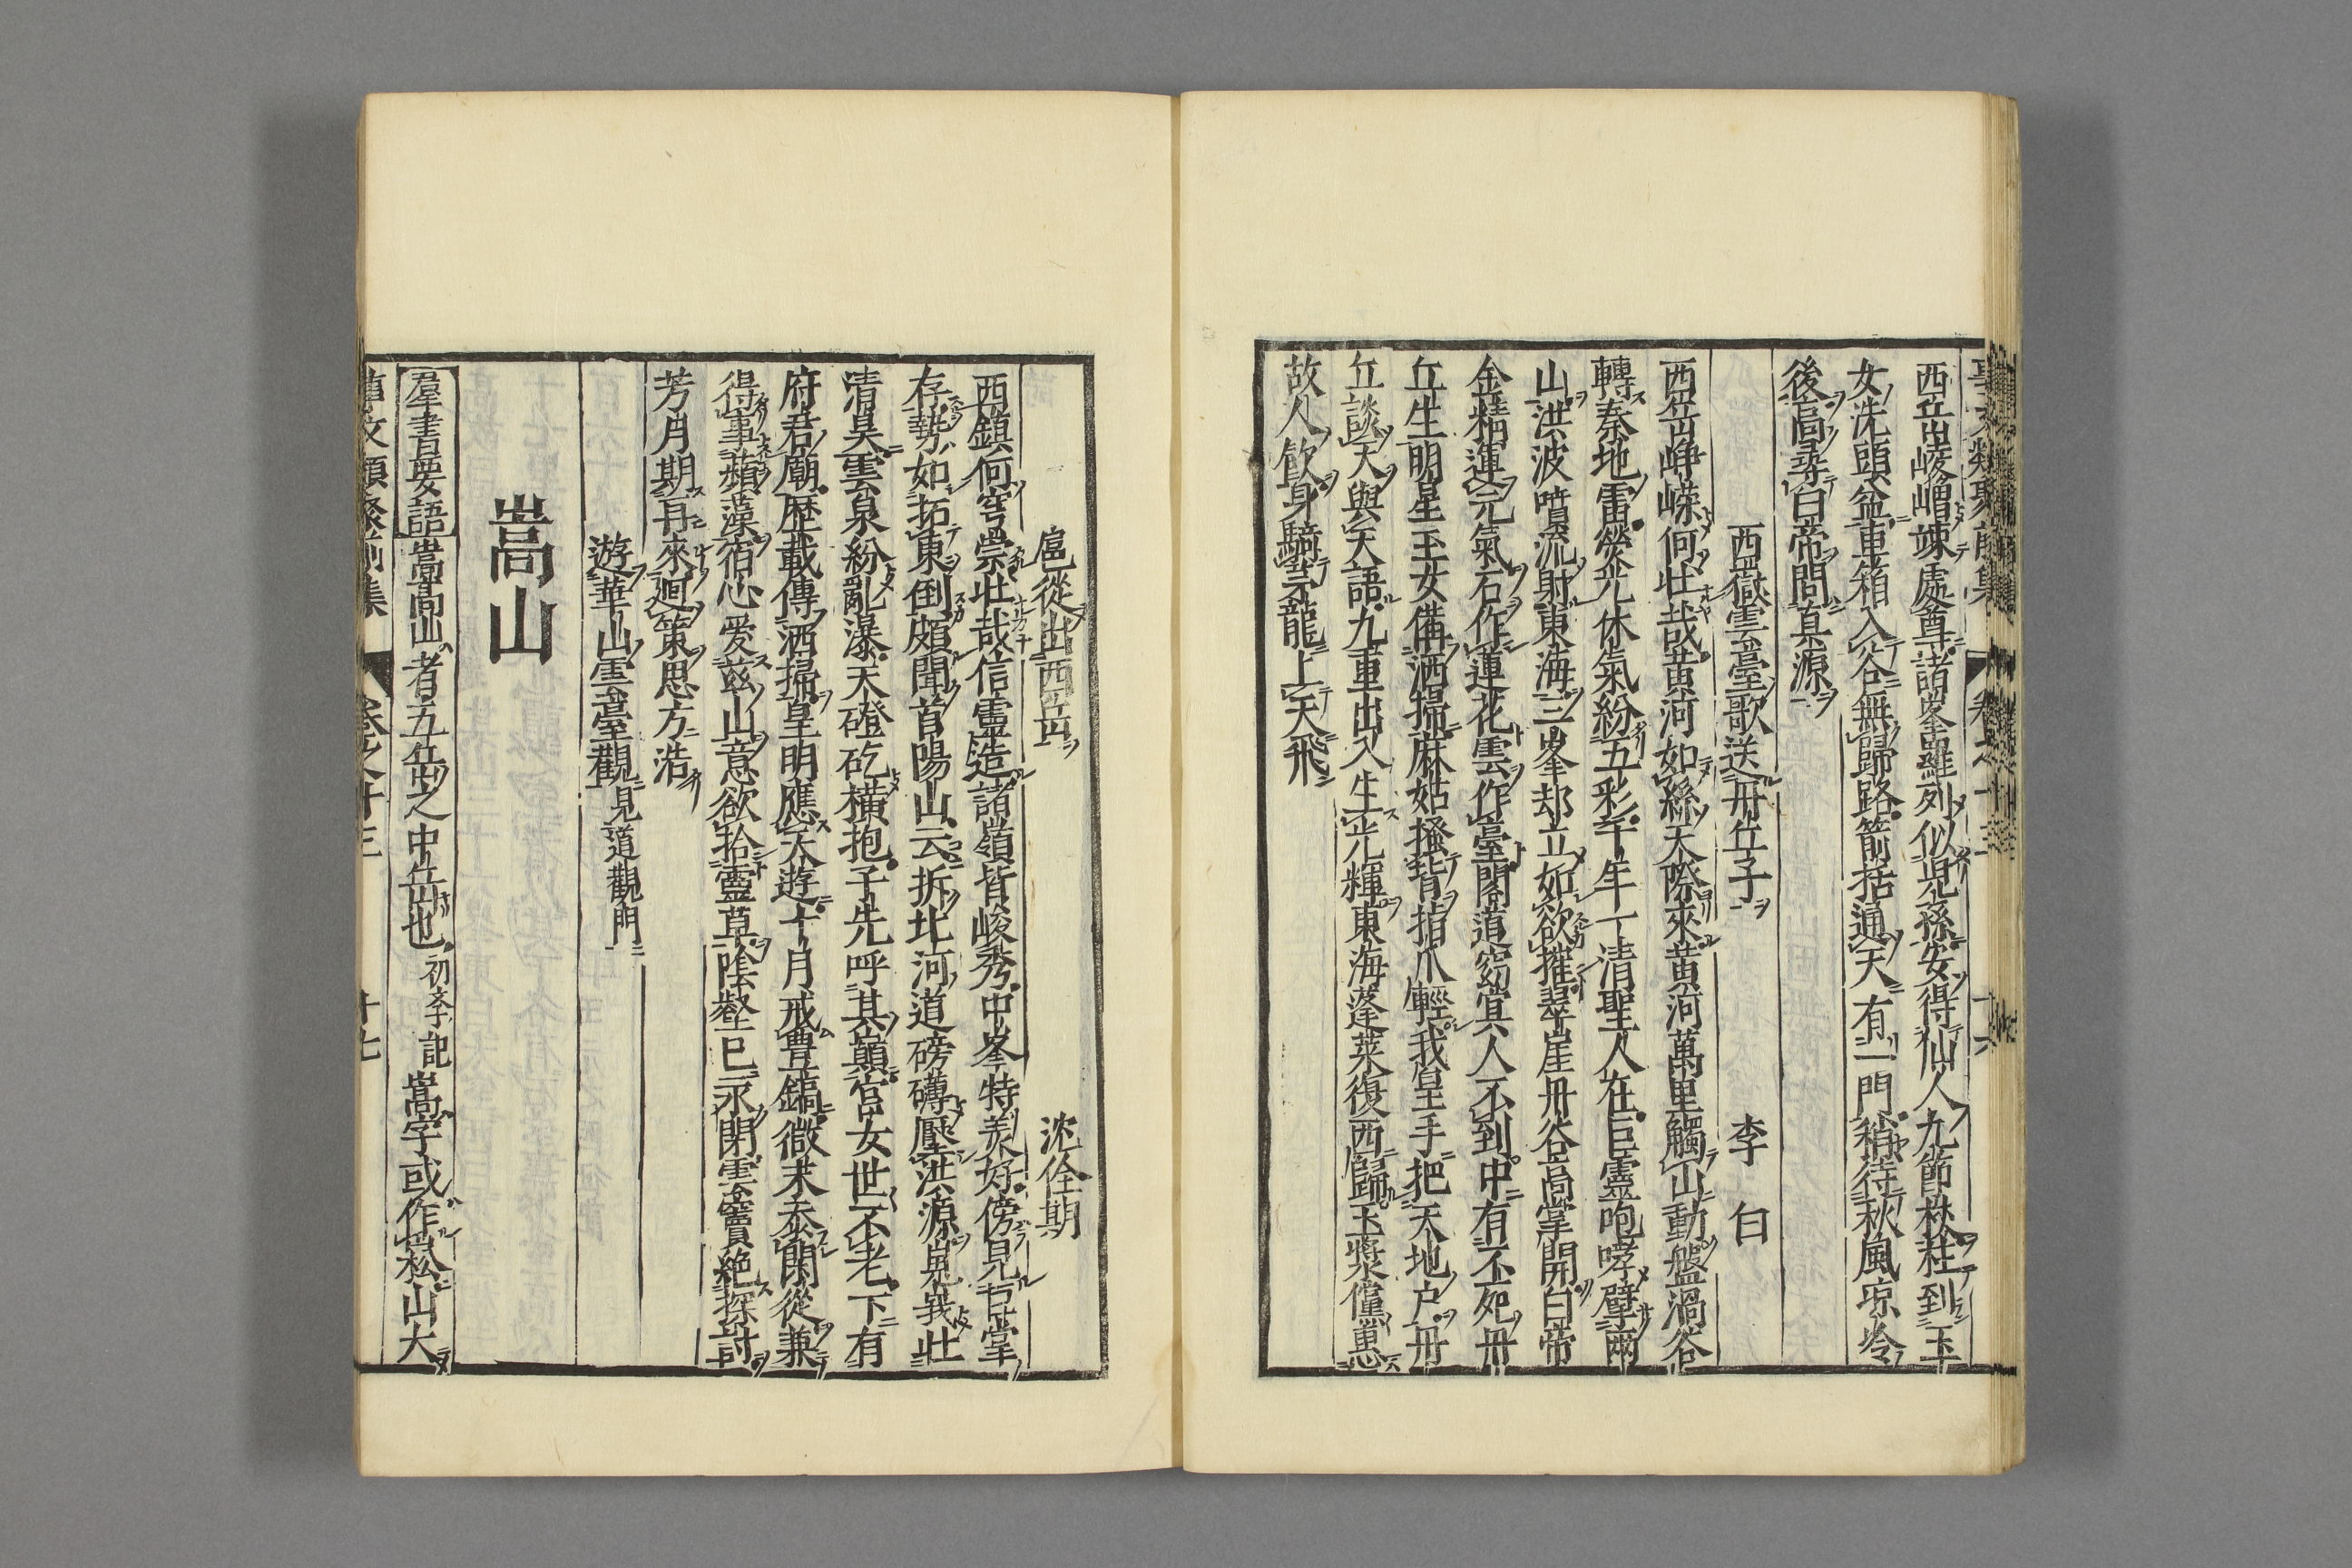 西岳崚嶒竦處尊諸峯羅列似兒孫安得仙人九節杖拄到玉
女洗頭盆車箱入谷無歸路箭括通天有一門稍待秋風凉冷
後高尋白帝問真源
西嶽雲臺歌送丹丘子 李白
西岳崢嶸何壯哉黃河如絲天際來黃河萬里觸山動盤渦谷
轉秦地雷榮光休氣紛五彩千年一清聖人在巨靈咆哮擘兩
山洪波噴流射東海三峯却立如欲摧翠崖丹谷高掌開白帝
金精運元氣石作蓮花雲作臺閣道窈冥人不到中有不死丹
丘生明星玉女備洒掃麻姑搔背指爪輕我皇手把天地户丹
丘談天與天語九重出入生光輝東海蓬萊復西歸玉漿儻惠
故人飲身騎茅龍上天飛
扈從出西岳 沈佺期
西鎮何穹崇壯哉信靈造諸嶺皆峻秀中峯特美好傍見巨掌
存勢如拓東倒頗聞首陽山云拆北河道磅礴壓洪源嵬峩壯
清昊雲泉紛亂瀑天磴矻橫抱子先呼其巔宮女世不老下有
府君廟歷載傳洒掃皇明應天遊十月戒豊鎬微末忝閑從兼
得事蘋藻宿心爱茲山意欲拾靈草陰壑已永閉雲竇絶探討
芳月期再來迴策思方浩
遊華山雲臺觀 見道觀門
嵩山
羣書要語 嵩高山者五岳之中岳也 初李記 嵩字或作崧山大
事文類聚前集 卷之十三 十七